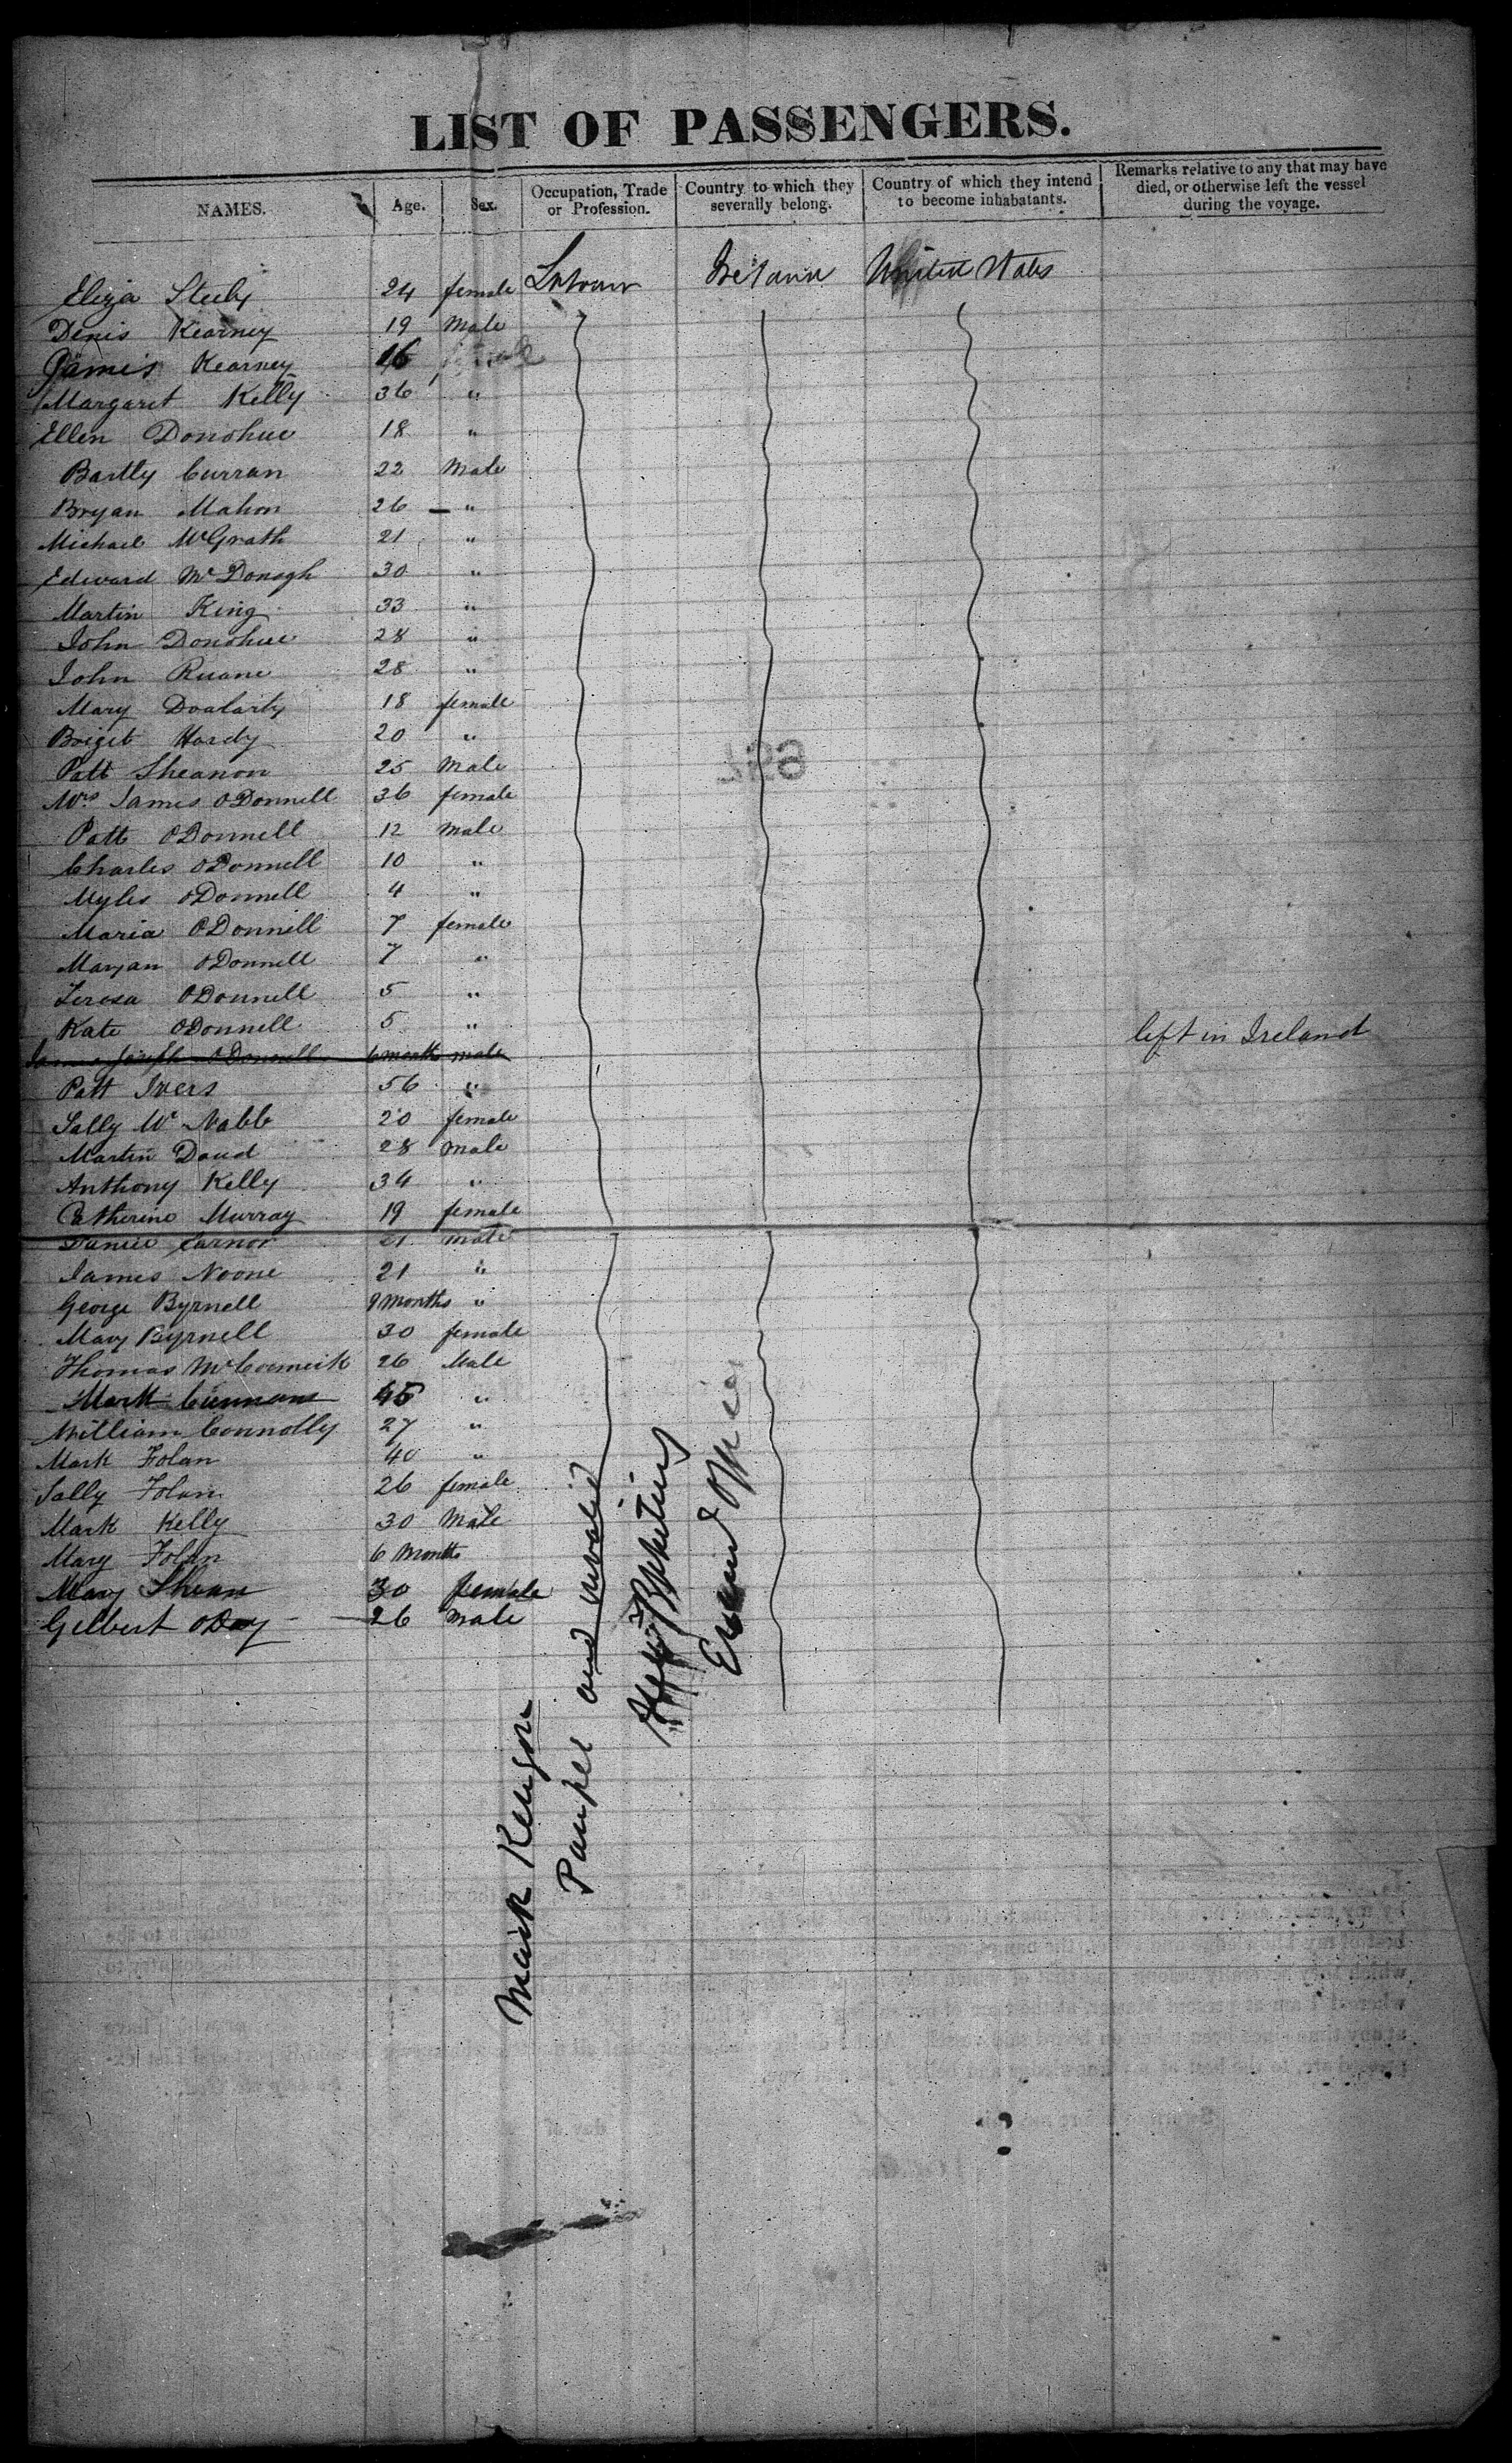 LIST OF PASSENGERS.
NAMES. Age. Sex. Occupation, Trade or Profession. Country to which they severally belong. Country of which they intend to become inhabatants. Remarks relative to any that may have died, or otherwise left the vessel during the voyage.
Eliza 24 female Ireland United States
Denis Kearney 19 Male
James Kearney 16
Margaret Kelly 36 "
Ellen Donohue 18 "
Bartly Curran 22 Male
Bryan Mahon 26 — "
Michael McGrath 21 "
Edward McDonogh 30 "
Martin King 33 "
John Donohue 28 "
John Ruane 28 "
Mary 18 female
Briget Hardy 20 "
Patt Sheanon 25 Male
Mrs James ODonnell 36 female
Patt ODonnell 12 male
Charles ODonnell 10 "
Myles ODonnell 4 "
Maria ODonnell 7 female
Maryan ODonnell 7 "
Teresa ODonnell 5 "
Kate ODonnell 5 " left in Ireland
Joseph ODonnell 6 months male
Patt Ivers 56 "
Sally Mc Nabb 20 female
Martin Daud 28 male
Anthony Kelly 34 "
Catherine Murray 19 female
21 male
James Noone 21 "
George Byrnell 9 months "
Mary Byrnell 30 female
Thomas McCormick 26 Male
Mark 45 "
William Connolly 27 "
Mark Folan 40 "
Sally Folan 26 female
Mark Kelly 30 Male
Mary Folan 6 Months
Mary 30 female
Gilbert ODay 26 male
Mark
Pauper and invalid